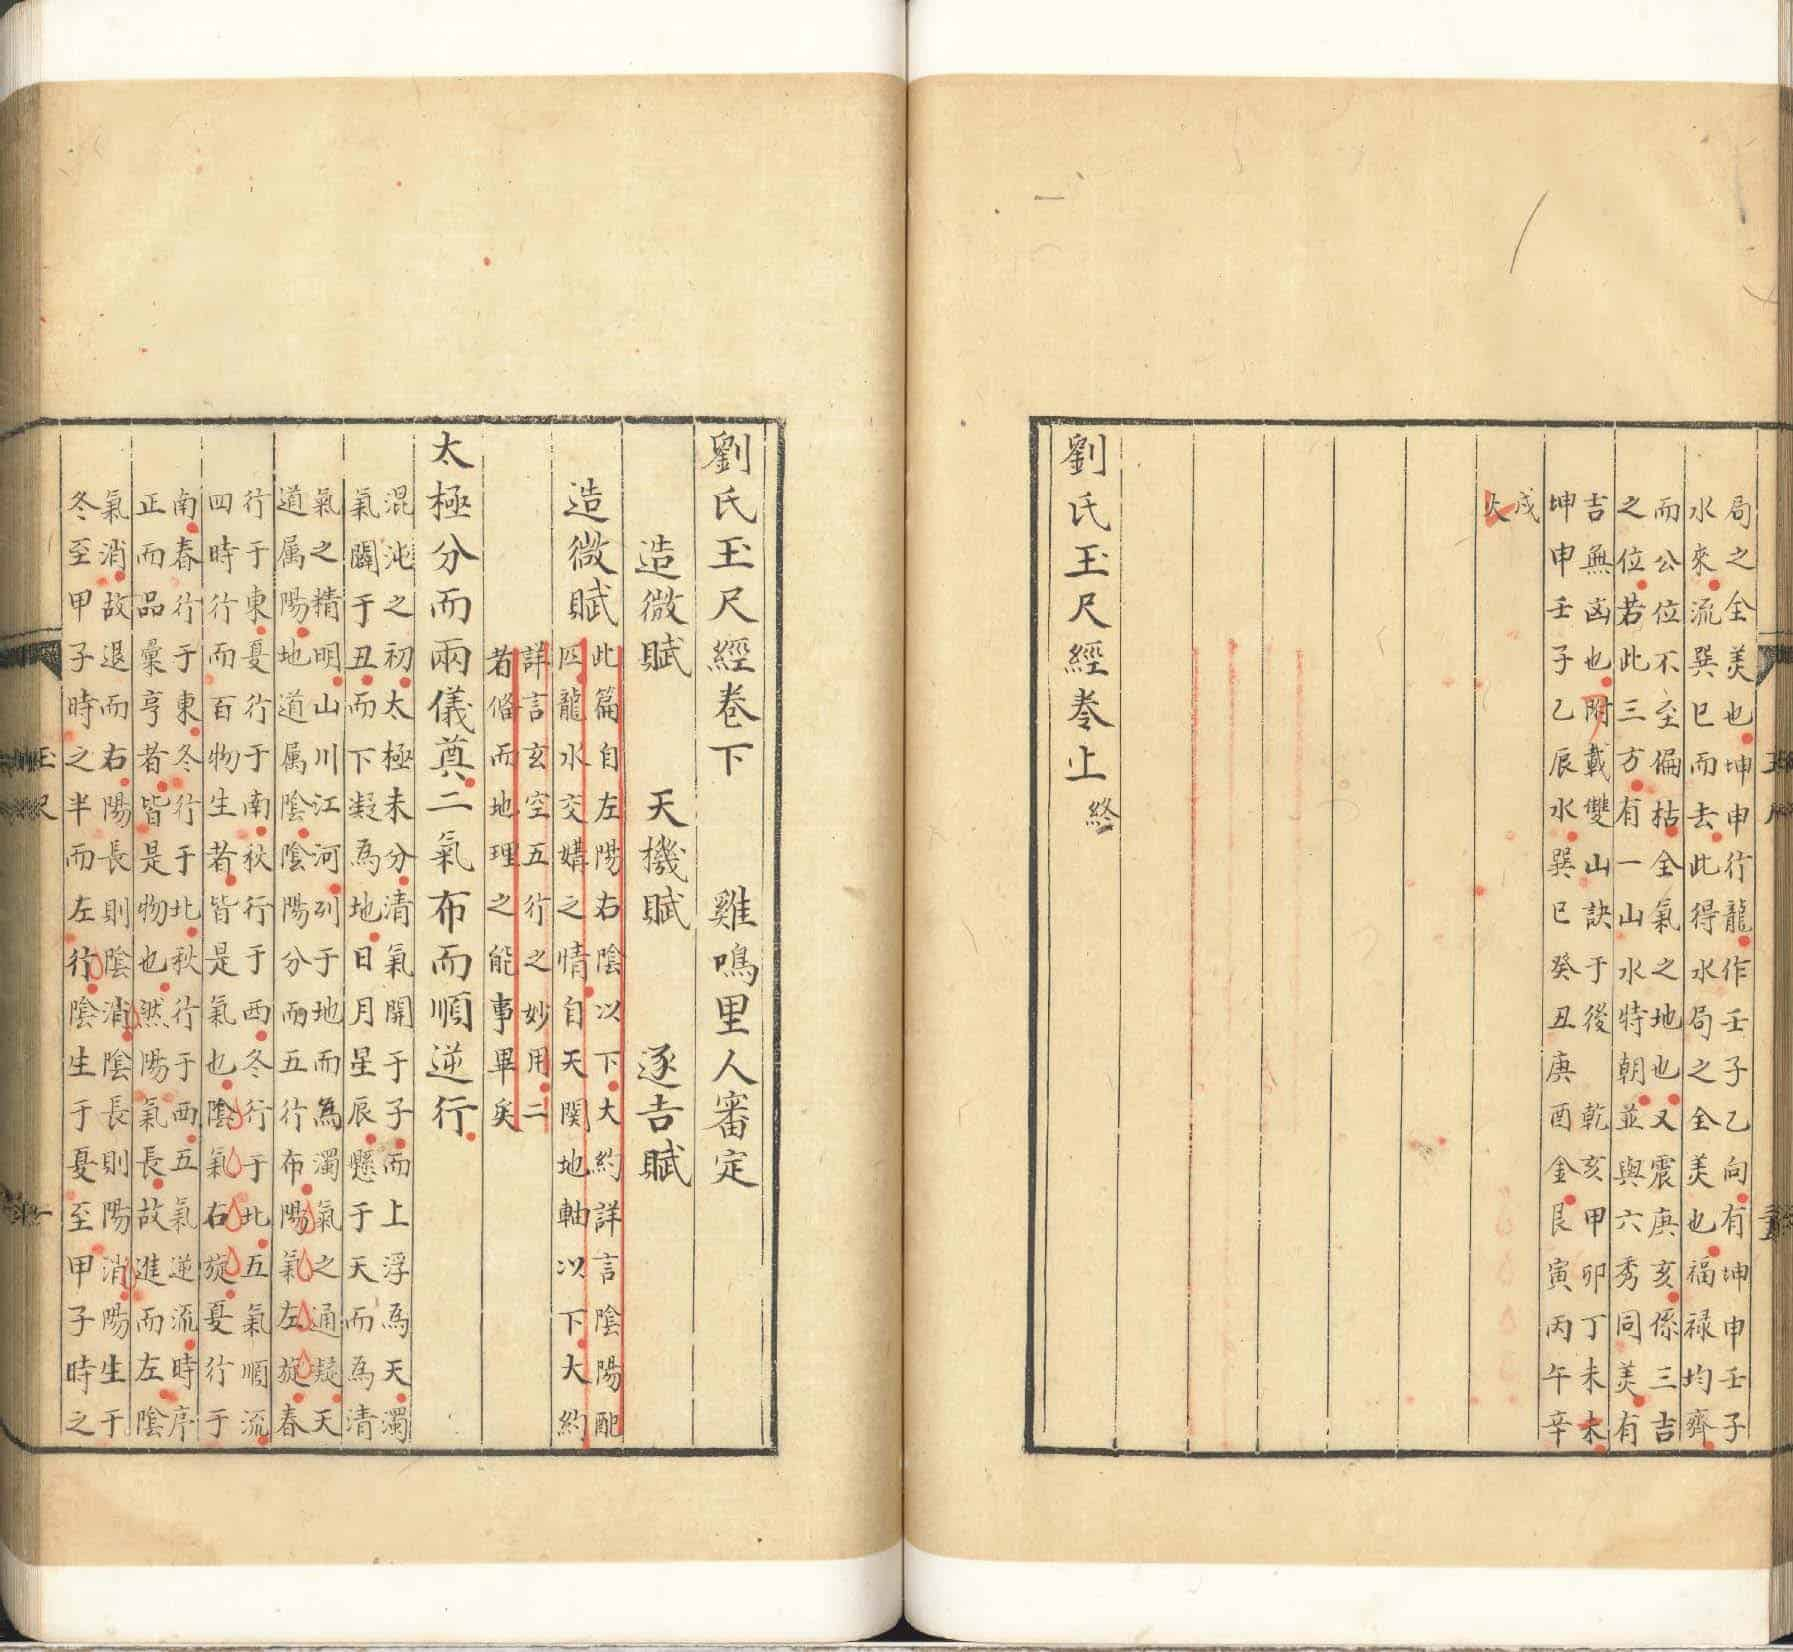 局之全美也坤申行龍作壬子乙向有坤申壬子
水來流巽巳而去此得水局之全美也福禄均齊
而公位不至偏枯全氣之地也又震庚亥係三吉
之位若此三方有一山水特朝並與六秀同美有
吉無凶也附載雙山訣于後　乾亥甲卯丁未木
坤申壬子乙辰水巽巳癸丑庚酉金艮寅丙午辛
戌
火
劉氏玉尺經卷上　終
劉氏玉尺經卷下　雞鳴里人審定
造微賦　天機賦　逐吉賦
造微賦　此篇自左陽右陰以下大約詳言陰陽配
四龍水交媾之情自天関地軸以下大約
詳言玄空五行之妙用二
者俻而地理之能事畢矣
太極分而兩儀奠二氣布而順逆行
混沌之初太極未分清氣開于子而上浮爲天濁
氣闢于丑而下凝爲地日月星辰懸于天而爲清
氣之精明山川江河列于地而爲濁氣之通凝天
道属陽地道属陰陰陽分而五行布陽氣左旋春
行于東夏行于南秋行于西冬行于北五氣順流
四時行而百物生者皆是氣也陰氣右旋夏行于
南春行于東冬行于北秋行于西五氣逆流時序
正而品彙亨者皆是物也然陽氣長故進而左陰
氣消故退而右陽長則陰消陰長則陽消陽生于
冬至甲子時之半而左行陰生于夏至甲子時之
玉尺